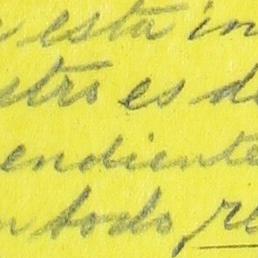 está in
stro es de
endiente
n todo, re